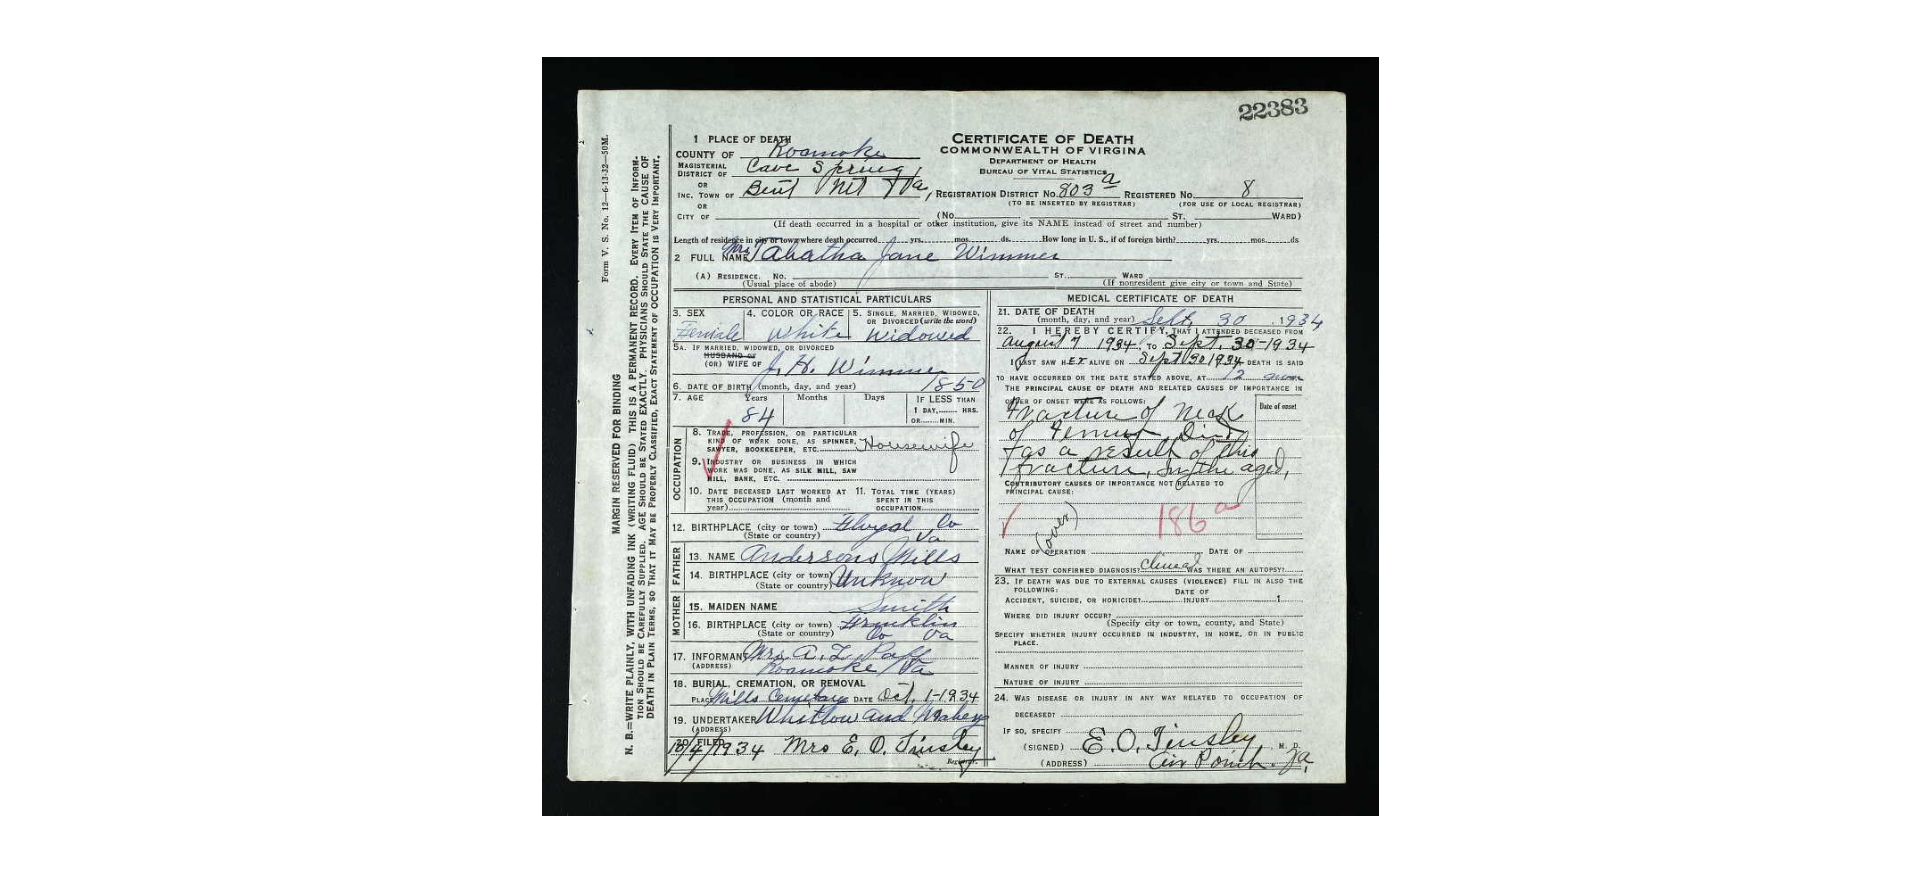 22383
1 PLACE OF DEATH
COUNTY OF Roanoke
MAGISTERIAL DISTRICT OF Cave Spring
OR
INC. TOWN OF Bent Mt Va
OR
CITY OF
CERTIFICATE OF DEATH
COMMONWEALTH OF VIRGINIA
DEPARTMENT OF HEALTH
BUREAU OF VITAL STATISTICS
REGISTRATION DISTRICT NO. 803 a REGISTERED NO. 8
(TO BE INSERTED BY REGISTRAR) (FOR USE OF LOCAL REGISTRAR)
(No. ST. WARD)
(If death occurred in a hospital or other institution, give its NAME instead of street and number)
Length of residence in city or town where death occurred yrs. mos. ds. How long in U. S., if of foreign birth? yrs. mos. ds
2 FULL NAME Mrs Tabatha Jane Wimmer
(A) RESIDENCE. No. ST. WARD
(Usual place of abode) (If nonresident give city or town and State)
PERSONAL AND STATISTICAL PARTICULARS
3. SEX 4. COLOR OR RACE 5. SINGLE, MARRIED, WIDOWED, OR DIVORCED (write the word)
Female White Widowed
5A. IF MARRIED, WIDOWED, OR DIVORCED
HUSBAND OF
(OR) WIFE OF J. H. Wimmer
6. DATE OF BIRTH (month, day, and year) 1850
7. AGE Years Months Days IF LESS THAN
84 1 DAY, HRS.
OR MIN.
OCCUPATION
8. TRADE, PROFESSION, OR PARTICULAR
KIND OF WORK DONE, AS SPINNER,
SAWYER, BOOKKEEPER, ETC. Housewife
9. INDUSTRY OR BUSINESS IN WHICH
WORK WAS DONE, AS SILK MILL, SAW
MILL, BANK, ETC.
10. DATE DECEASED LAST WORKED AT
THIS OCCUPATION (month and
year)
11. TOTAL TIME (YEARS)
SPENT IN THIS
OCCUPATION
12. BIRTHPLACE (city or town) Floyd Co
(State or country) Va
FATHER
13. NAME Andersons Mills
14. BIRTHPLACE (city or town) Unknow
(State or country)
MOTHER
15. MAIDEN NAME Smith
16. BIRTHPLACE (city or town) Franklin
(State or country) Co Va
17. INFORMANT Mrs. A. L.
(ADDRESS) Roanoke Va
18. BURIAL, CREMATION, OR REMOVAL
PLACE Mills Cemetary DATE Oct, 1-1934
19. UNDERTAKER Whitlow and
(ADDRESS)
20. FILED 10/4/1934 Mrs E. O. Tinsley
Registrar.
MEDICAL CERTIFICATE OF DEATH
21. DATE OF DEATH
(month, day, and year) Sept, 30, 1934
22. I HEREBY CERTIFY, THAT I ATTENDED DECEASED FROM
August 7 1934, TO Sept. 30-1934
I LAST SAW HER ALIVE ON Sept 30 1934, DEATH IS SAID
TO HAVE OCCURRED ON THE DATE STATED ABOVE, AT 12
THE PRINCIPAL CAUSE OF DEATH AND RELATED CAUSES OF IMPORTANCE IN
ORDER OF ONSET WERE AS FOLLOWS:
Date of onset
Fracture of neck
of Femur, Died
as a result of this
fracture, in the aged,
CONTRIBUTORY CAUSES OF IMPORTANCE NOT RELATED TO
PRINCIPAL CAUSE:
(over) 186 a
NAME OF OPERATION DATE OF
WHAT TEST CONFIRMED DIAGNOSIS? Clinical WAS THERE AN AUTOPSY?
23. IF DEATH WAS DUE TO EXTERNAL CAUSES (VIOLENCE) FILL IN ALSO THE
FOLLOWING:
ACCIDENT, SUICIDE, OR HOMICIDE? DATE OF INJURY 1
WHERE DID INJURY OCCUR?
(Specify city or town, county, and State)
SPECIFY WHETHER INJURY OCCURRED IN INDUSTRY, IN HOME, OR IN PUBLIC
PLACE.
MANNER OF INJURY
NATURE OF INJURY
24. WAS DISEASE OR INJURY IN ANY WAY RELATED TO OCCUPATION OF
DECEASED?
IF SO, SPECIFY
(SIGNED) E. O. Tinsley M. D.
(ADDRESS) Air Point. Va,
Form V. S. No. 12—6-13-32—50M.
MARGIN RESERVED FOR BINDING
N. B.—WRITE PLAINLY, WITH UNFADING INK (WRITING FLUID) THIS IS A PERMANENT RECORD. EVERY ITEM OF INFORM-
TION SHOULD BE CAREFULLY SUPPLIED. AGE SHOULD BE STATED EXACTLY. PHYSICIANS SHOULD STATE THE CAUSE OF
DEATH IN PLAIN TERMS, SO THAT IT MAY BE PROPERLY CLASSIFIED. EXACT STATEMENT OF OCCUPATION IS VERY IMPORTANT.